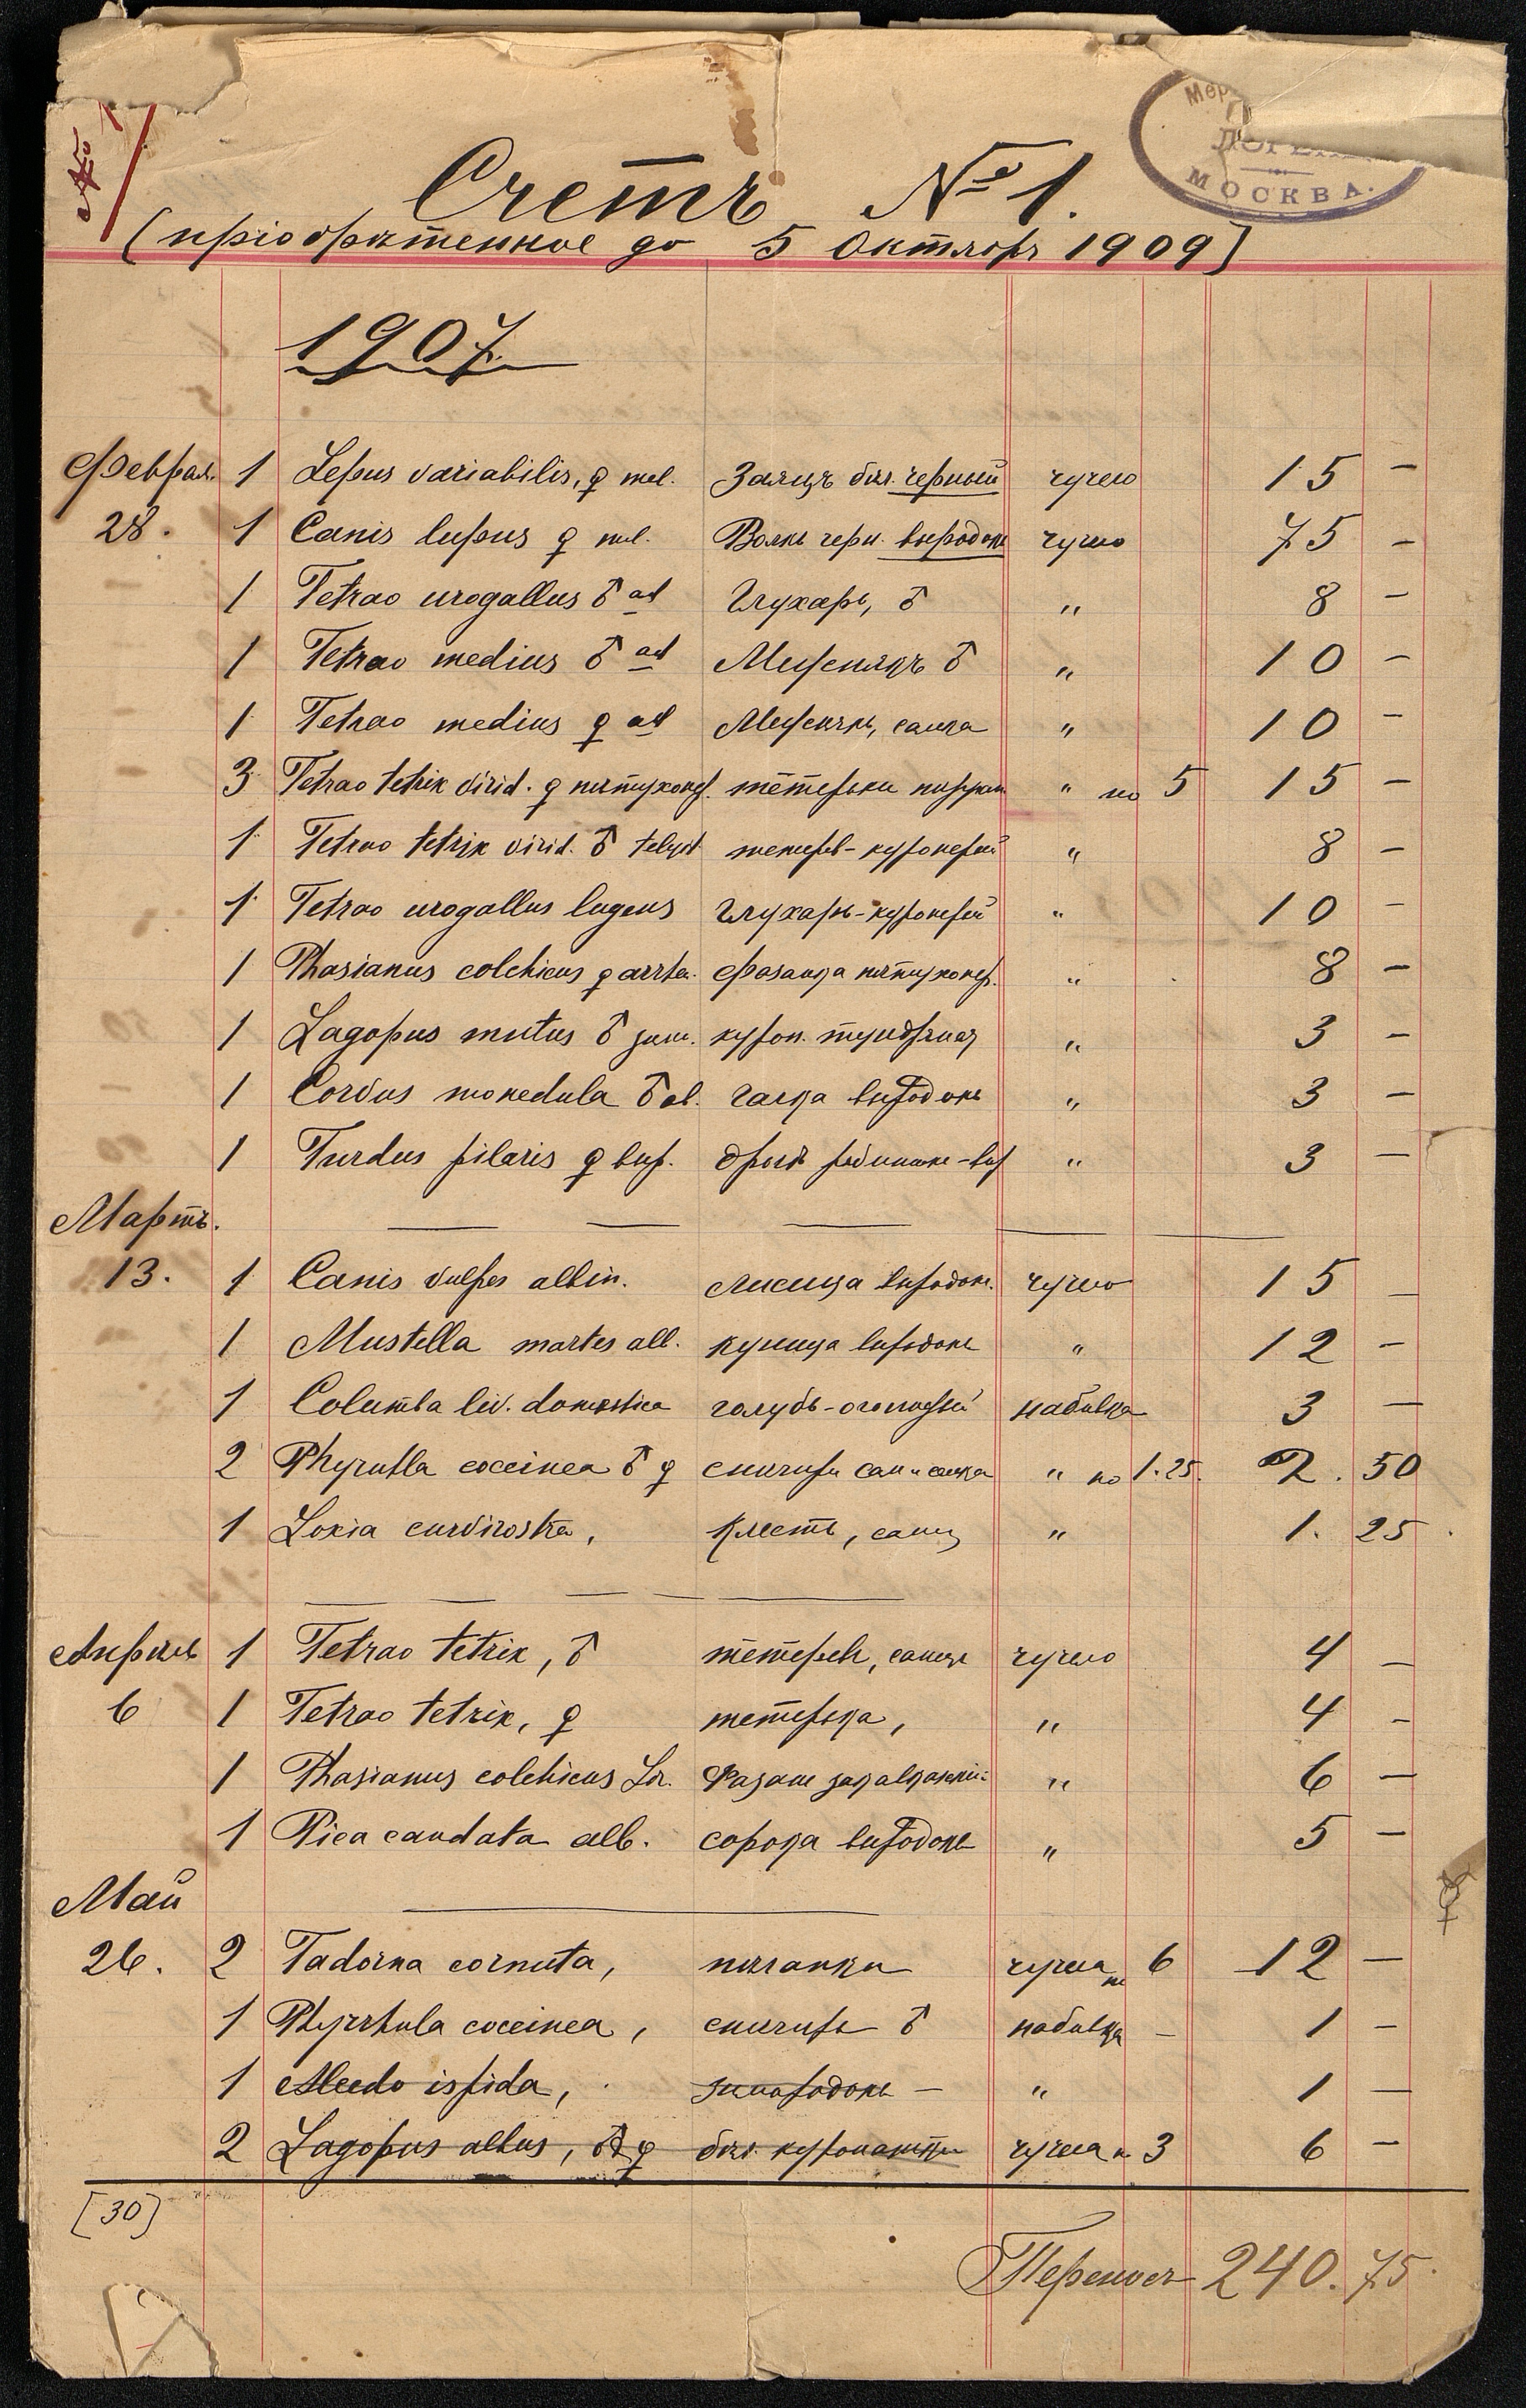 Мер
ЛОРЕНЦ
МОСКВА.
Счетъ № 1.
(пріобрѣтенное до 5 Октября 1909)
1907.
Феврал. 1 Lepus variabilis, ♀ mel. Заяцъ бѣл. черный чучело 15 —
28. 1 Canis lupus ♀ mel. Волкъ черн. выродокъ чучело 75 —
1 Tetrao urogallus ♂ ad Глухарь, ♂ " 8 —
1 Tetrao medius ♂ ad Межнякъ ♂ " 10 —
1 Tetrao medius ♀ ad Межнякъ, самка " 10 —
3 Tetrao tetrix virid. ♀ пѣтухопер. тётерьки " по 5 15 —
1 Tetrao tetrix virid. ♂ тетерев-куроперый " 8 —
1 Tetrao urogallus lugens глухарь-куроперый " 10 —
1 Phasianus colchicus ♀ arrhen. фазанка пѣтухопер. " 8 —
1 Lagopus mutus ♂ зим. куроп. тундряная " 3 —
1 Corvus monedula ♂ al. галка выродокъ " 3 —
1 Turdus pilaris ♀ выр. дроздъ рябинник-выр " 3 —
Мартъ.
13. 1 Canis vulpes albin. лисица выродокъ. чучело 15 —
1 Mustella martes alb. куница выродокъ " 12 —
1 Columba liv. domestica голубь- набивка 3 —
2 Phyrulla coccinea ♂ ♀ снигири сам и самка " по 1.25. 2. 50
1 Loxia curvirostra, клестъ, самец " 1. 25
Апрѣль 1 Tetrao tetrix, ♂ тетеревъ, самецъ чучело 4 —
6 1 Tetrao tetrix, ♀ тетерька, " 4 —
1 Phasianus colchicus Lor. Фазанъ закавказскій " 6 —
1 Pica caudata alb. сорока выродокъ " 5 —
Май
26. 2 Tadorna cornuta, пѣганки чучела по 6 12 —
1 Phyrrhula coccinea, снигирь ♂ набивка — 1 —
1 Alcedo ispida, зимородокъ — " 1 —
2 Lagopus albus, ♂ ♀ бѣл. куропатки чучела п 3 6 —
[30]
Переносъ 240.75.